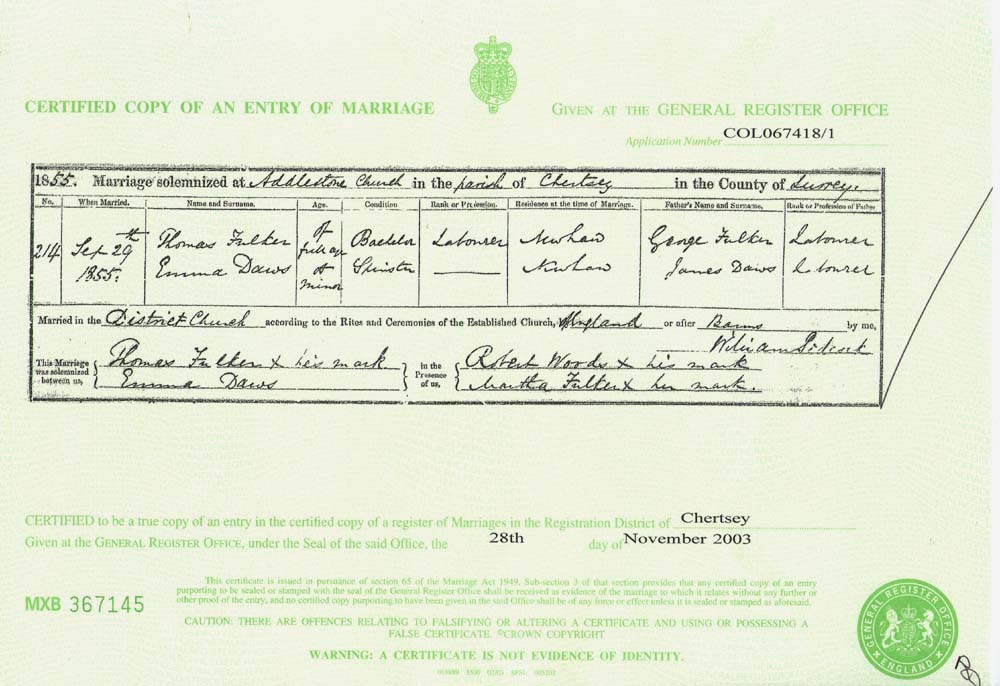 CERTIFIED COPY OF AN ENTRY OF MARRIAGE
GIVEN AT THE GENERAL REGISTER OFFICE
Application Number COL067418/1
1855. Marriage solemnized at Addlestone Church in the parish of Chertsey in the County of Surrey.
No. When Married. Name and Surname. Age. Condition Rank or Profession. Residence at the time of Marriage. Father's Name and Surname. Rank or Profession of Father
214 Sept 29th 1855. Thomas Fulker of full age Bachelor Labourer Newhaw George Fulker Labourer
Emma Daws of minor Spinster Newhaw James Daws Labourer
Married in the District Church according to the Rites and Ceremonies of the Established Church, England or after Banns by me,
William
This Marriage was solemnized between us, Thomas Fulker x his mark in the Presence of us, Robert Woods x his mark
Emma Daws Martha Fulker x her mark.
CERTIFIED to be a true copy of an entry in the certified copy of a register of Marriages in the Registration District of Chertsey
Given at the GENERAL REGISTER OFFICE, under the Seal of the said Office, the 28th day of November 2003
MXB 367145
This certificate is issued in pursuance of section 65 of the Marriage Act 1949. Sub-section 3 of that section provides that any certified copy of an entry
purporting to be sealed or stamped with the seal of the General Register Office shall be received as evidence of the marriage to which it relates without any further or
other proof of the entry, and no certified copy purporting to have been given in the said Office shall be of any force or effect unless it is sealed or stamped as aforesaid.
CAUTION: THERE ARE OFFENCES RELATING TO FALSIFYING OR ALTERING A CERTIFICATE AND USING OR POSSESSING A
FALSE CERTIFICATE. ©CROWN COPYRIGHT
WARNING: A CERTIFICATE IS NOT EVIDENCE OF IDENTITY.
GENERAL REGISTER OFFICE
ENGLAND